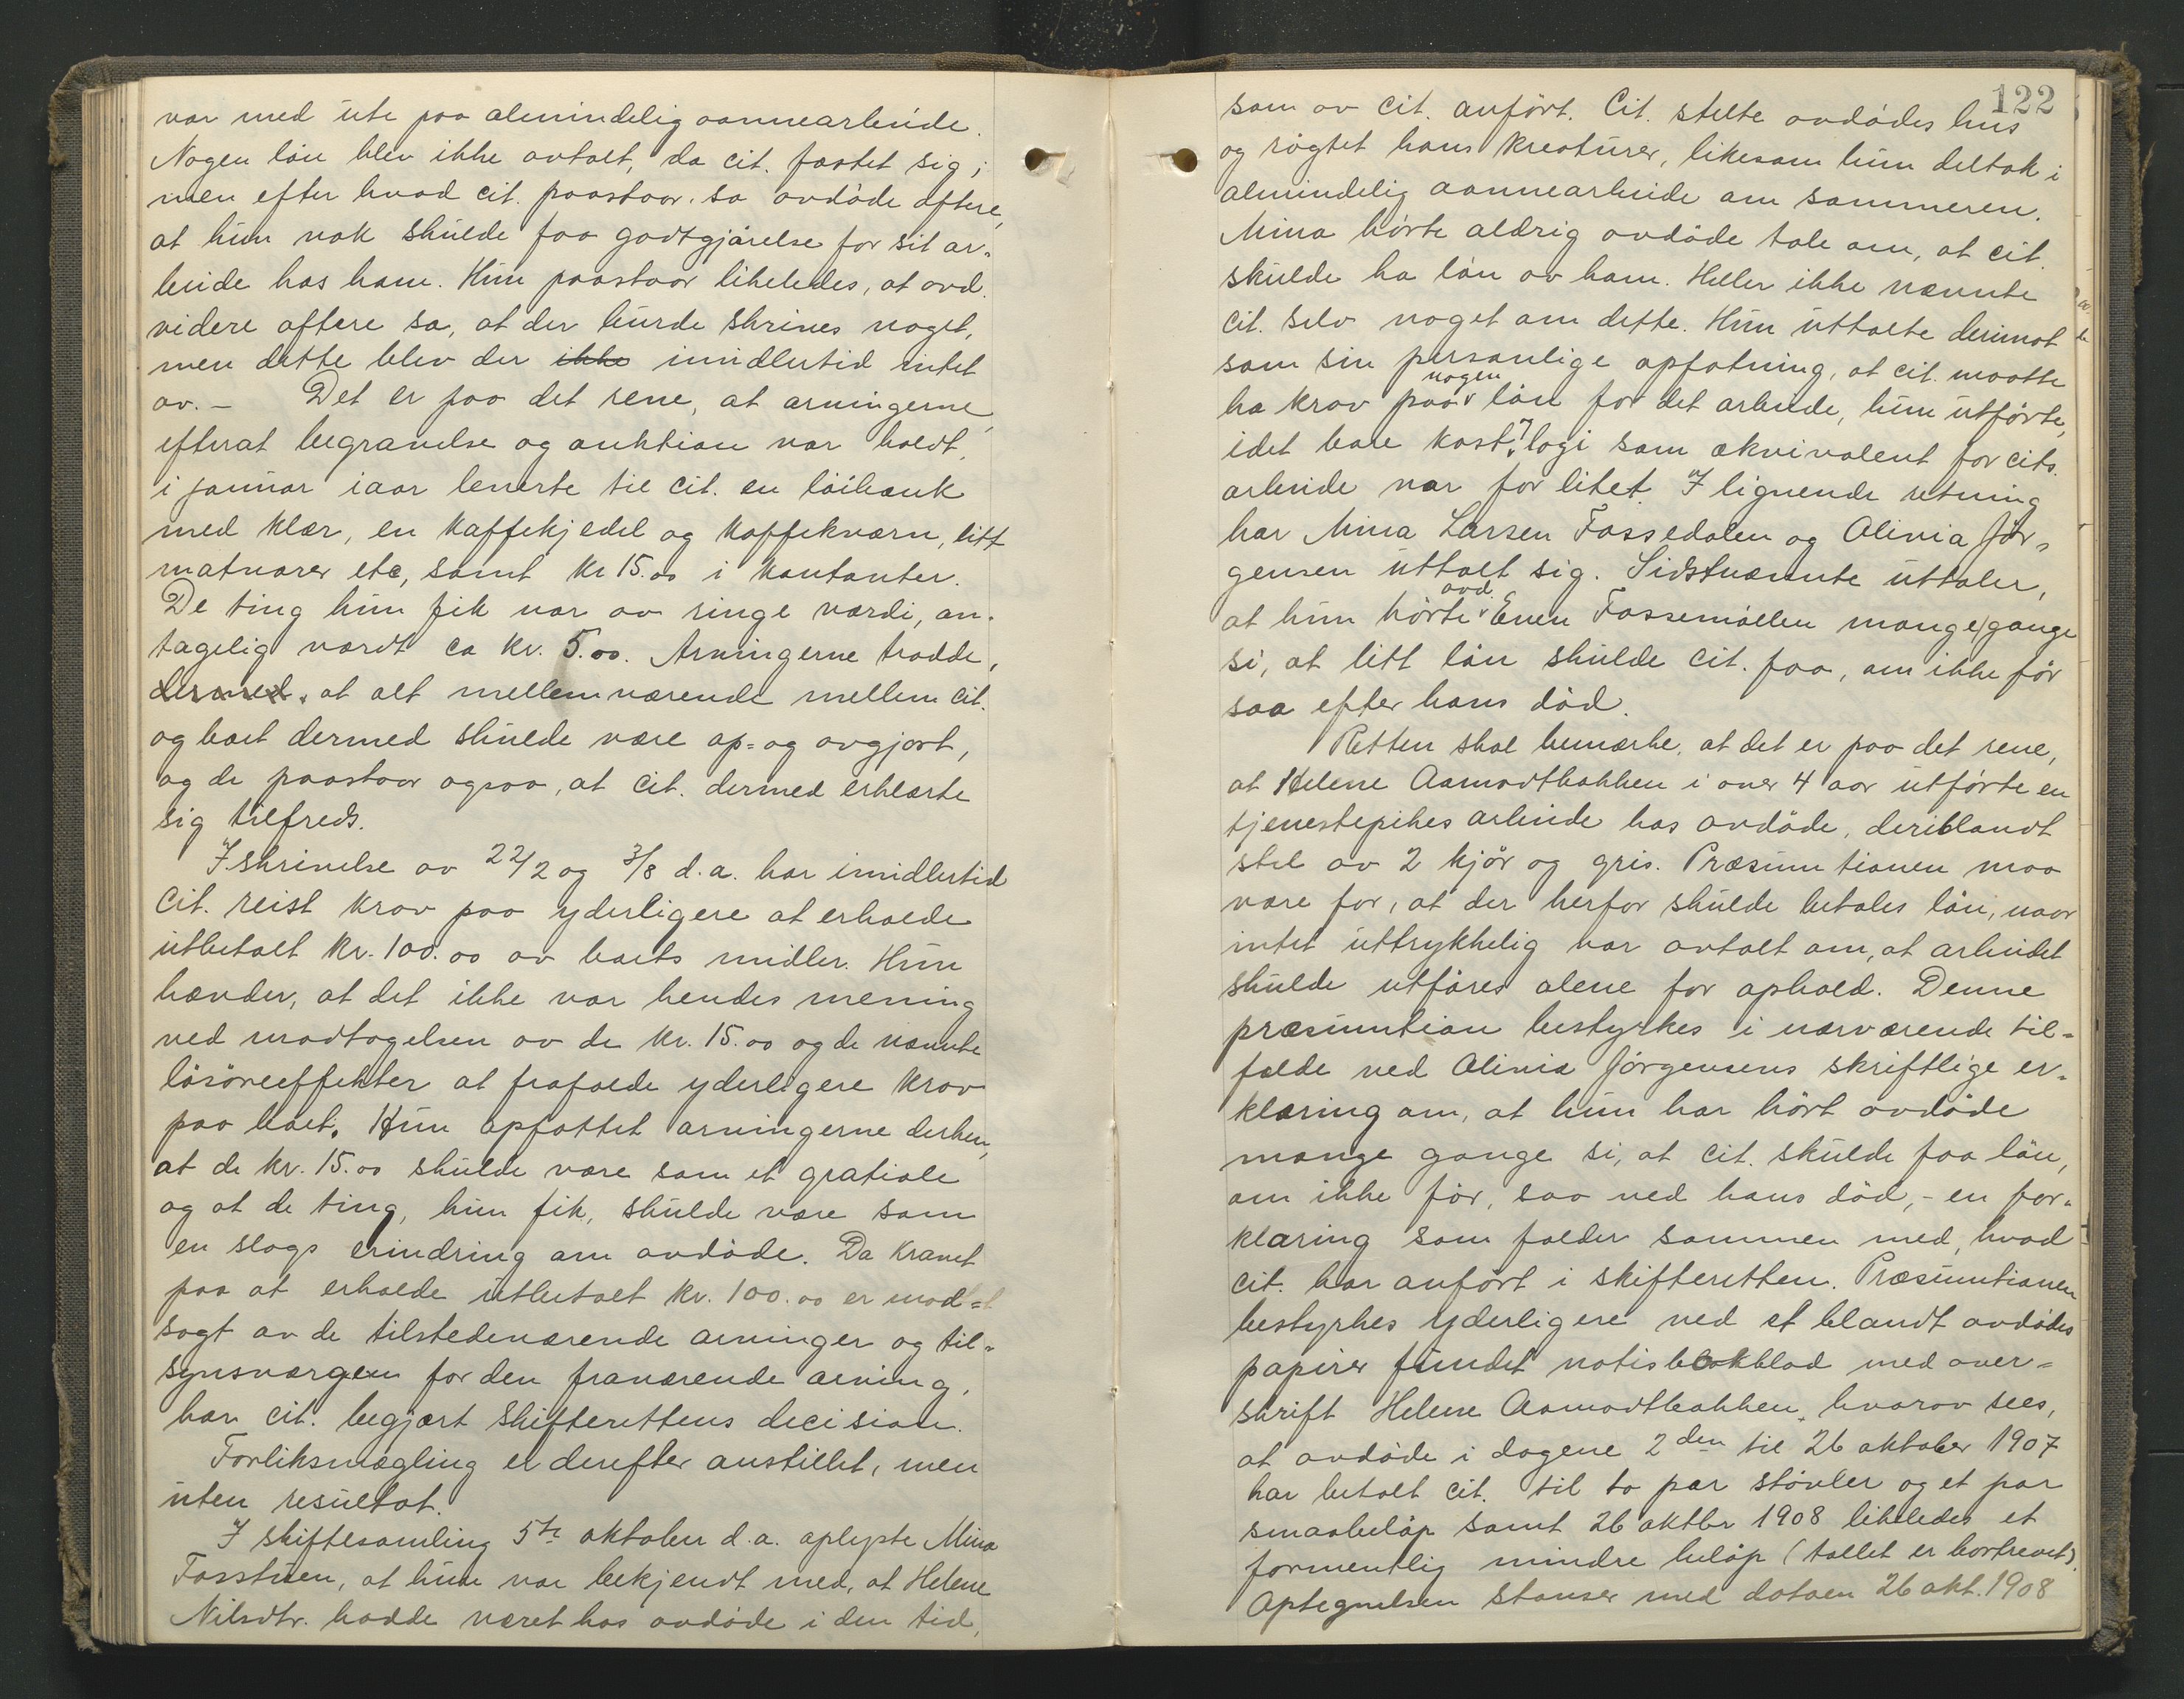 var med ute paa almindelig aannearbeide.
Nogen løn blev ikke avtalt, da cit. fæstet sig;
men efter hvad cit. paastaar. sa avdøde oftere,
at hun nok skulde faa godtgjørelse for sit ar-
beide hos ham. Hun paastaar likeledes, at avd.
videre oftere sa, at der burde skrives noget,
men dette blev der ikke imidlertid intet
av. — Det er paa det rene, at arvingerne,
efterat begravelse og auktion var holdt,
i januar iaar leverte til cit. en løibænk
med klær, en kaffekjedel og kaffekværn, litt
matvarer etc, samt kr 15.00 i kontanter.
De ting hun fik var av ringe værdi, an-
tagelig værdt ca kr. 5.00. Arvingerne trodde,
dermed, at alt mellemværende mellem cit.
og boet dermed skulde være op- og avgjort,
og de paastaar ogsaa, at cit. dermed erklærte
sig tilfreds.
I skrivelse av 22/2 og 3/8 d.a. har imidlertid
cit. reist krav paa yderligere at erholde
utbetalt kr. 100.00 av boets midler. Hun
hævder, at det ikke var hendes mening
ved modtagelsen av de kr. 15.00 og de nævnte
løsøreeffekter at frafalde yderligere krav
paa boet. Hun opfattet arvingerne derhen,
at de kr. 15.00 skulde være som et gratiale
og at de ting, hun fik, skulde være som
en slags erindring om avdøde. Da kravet
paa at erholde utbetalt kr. 100.00 er mod-
sagt av de tilstedeværende arvinger og til-
synsværgen for den fraværende arving,
har cit. begjært skifterettens decision.
Forliksmægling er derefter anstillet, men
uten resultat.
I skiftesamling 5te oktober d.a. oplyste Mina
Fosstuen, at hun var bekjendt med, at Helene
Nilsdtr. hadde været hos avdøde i den tid,
122
som av cit. anført. Cit. stelte avdødes hus
og røgtet hans kreaturer, likesom hun deltok i
almindelig aannearbeide om sommeren.
Mina hørte aldrig avdøde tale om, at cit.
skulde ha løn av ham. Heller ikke nævnte
cit. selv noget om dette. Hun uttalte derimot
som sin personlige opfatning, at cit. maatte
ha krav paa nogen løn for det arbeide, hun utførte,
idet bare kost & logi som ækvivalent for cits.
arbeide var for litet. I lignende retning
har Mina Larsen Fossedalen og Olivia Jør-
gensen uttalt sig. Sidstnævnte uttaler,
at hun hørte avd. Even Fossemøllen mange gange
si, at litt løn skulde cit. faa, om ikke før
saa efter hans død.
Retten skal bemærke, at det er paa det rene,
at Helene Aamodtbakken i over 4 aar utførte en
tjenestepikes arbeide hos avdøde, deriblandt
stel av 2 kjør og gris. Præsumtionen maa
være for, at der herfor skulde betales løn, naar
intet uttrykkelig var avtalt om, at arbeidet
skulde utføres alene for ophold. Denne
præsumtion bestyrkes i nærværende til-
fælde ved Olivia Jørgensens skriftlige er-
klæring om, at hun har hørt avdøde
mange gange si, at cit. skulde faa løn,
om ikke før, saa ved hans død, - en for-
klaring som falder sammen med, hvad
cit. har anført i skifteretten. Præsumtionen
bestyrkes yderligere ved et blandt avdødes
papirer fundet notisbokblad med over-
skrift Helene Aamodtbakken, hvorav sees,
at avdøde i dagene 2den til 26 oktober 1907
har betalt cit. til to par støvler og et par
smaabeløp samt 26 oktbr 1908 likeledes et
formentlig mindre beløp (tallet er bortrevet).
Optegnelsen stanser med datoen 26 okt. 1908